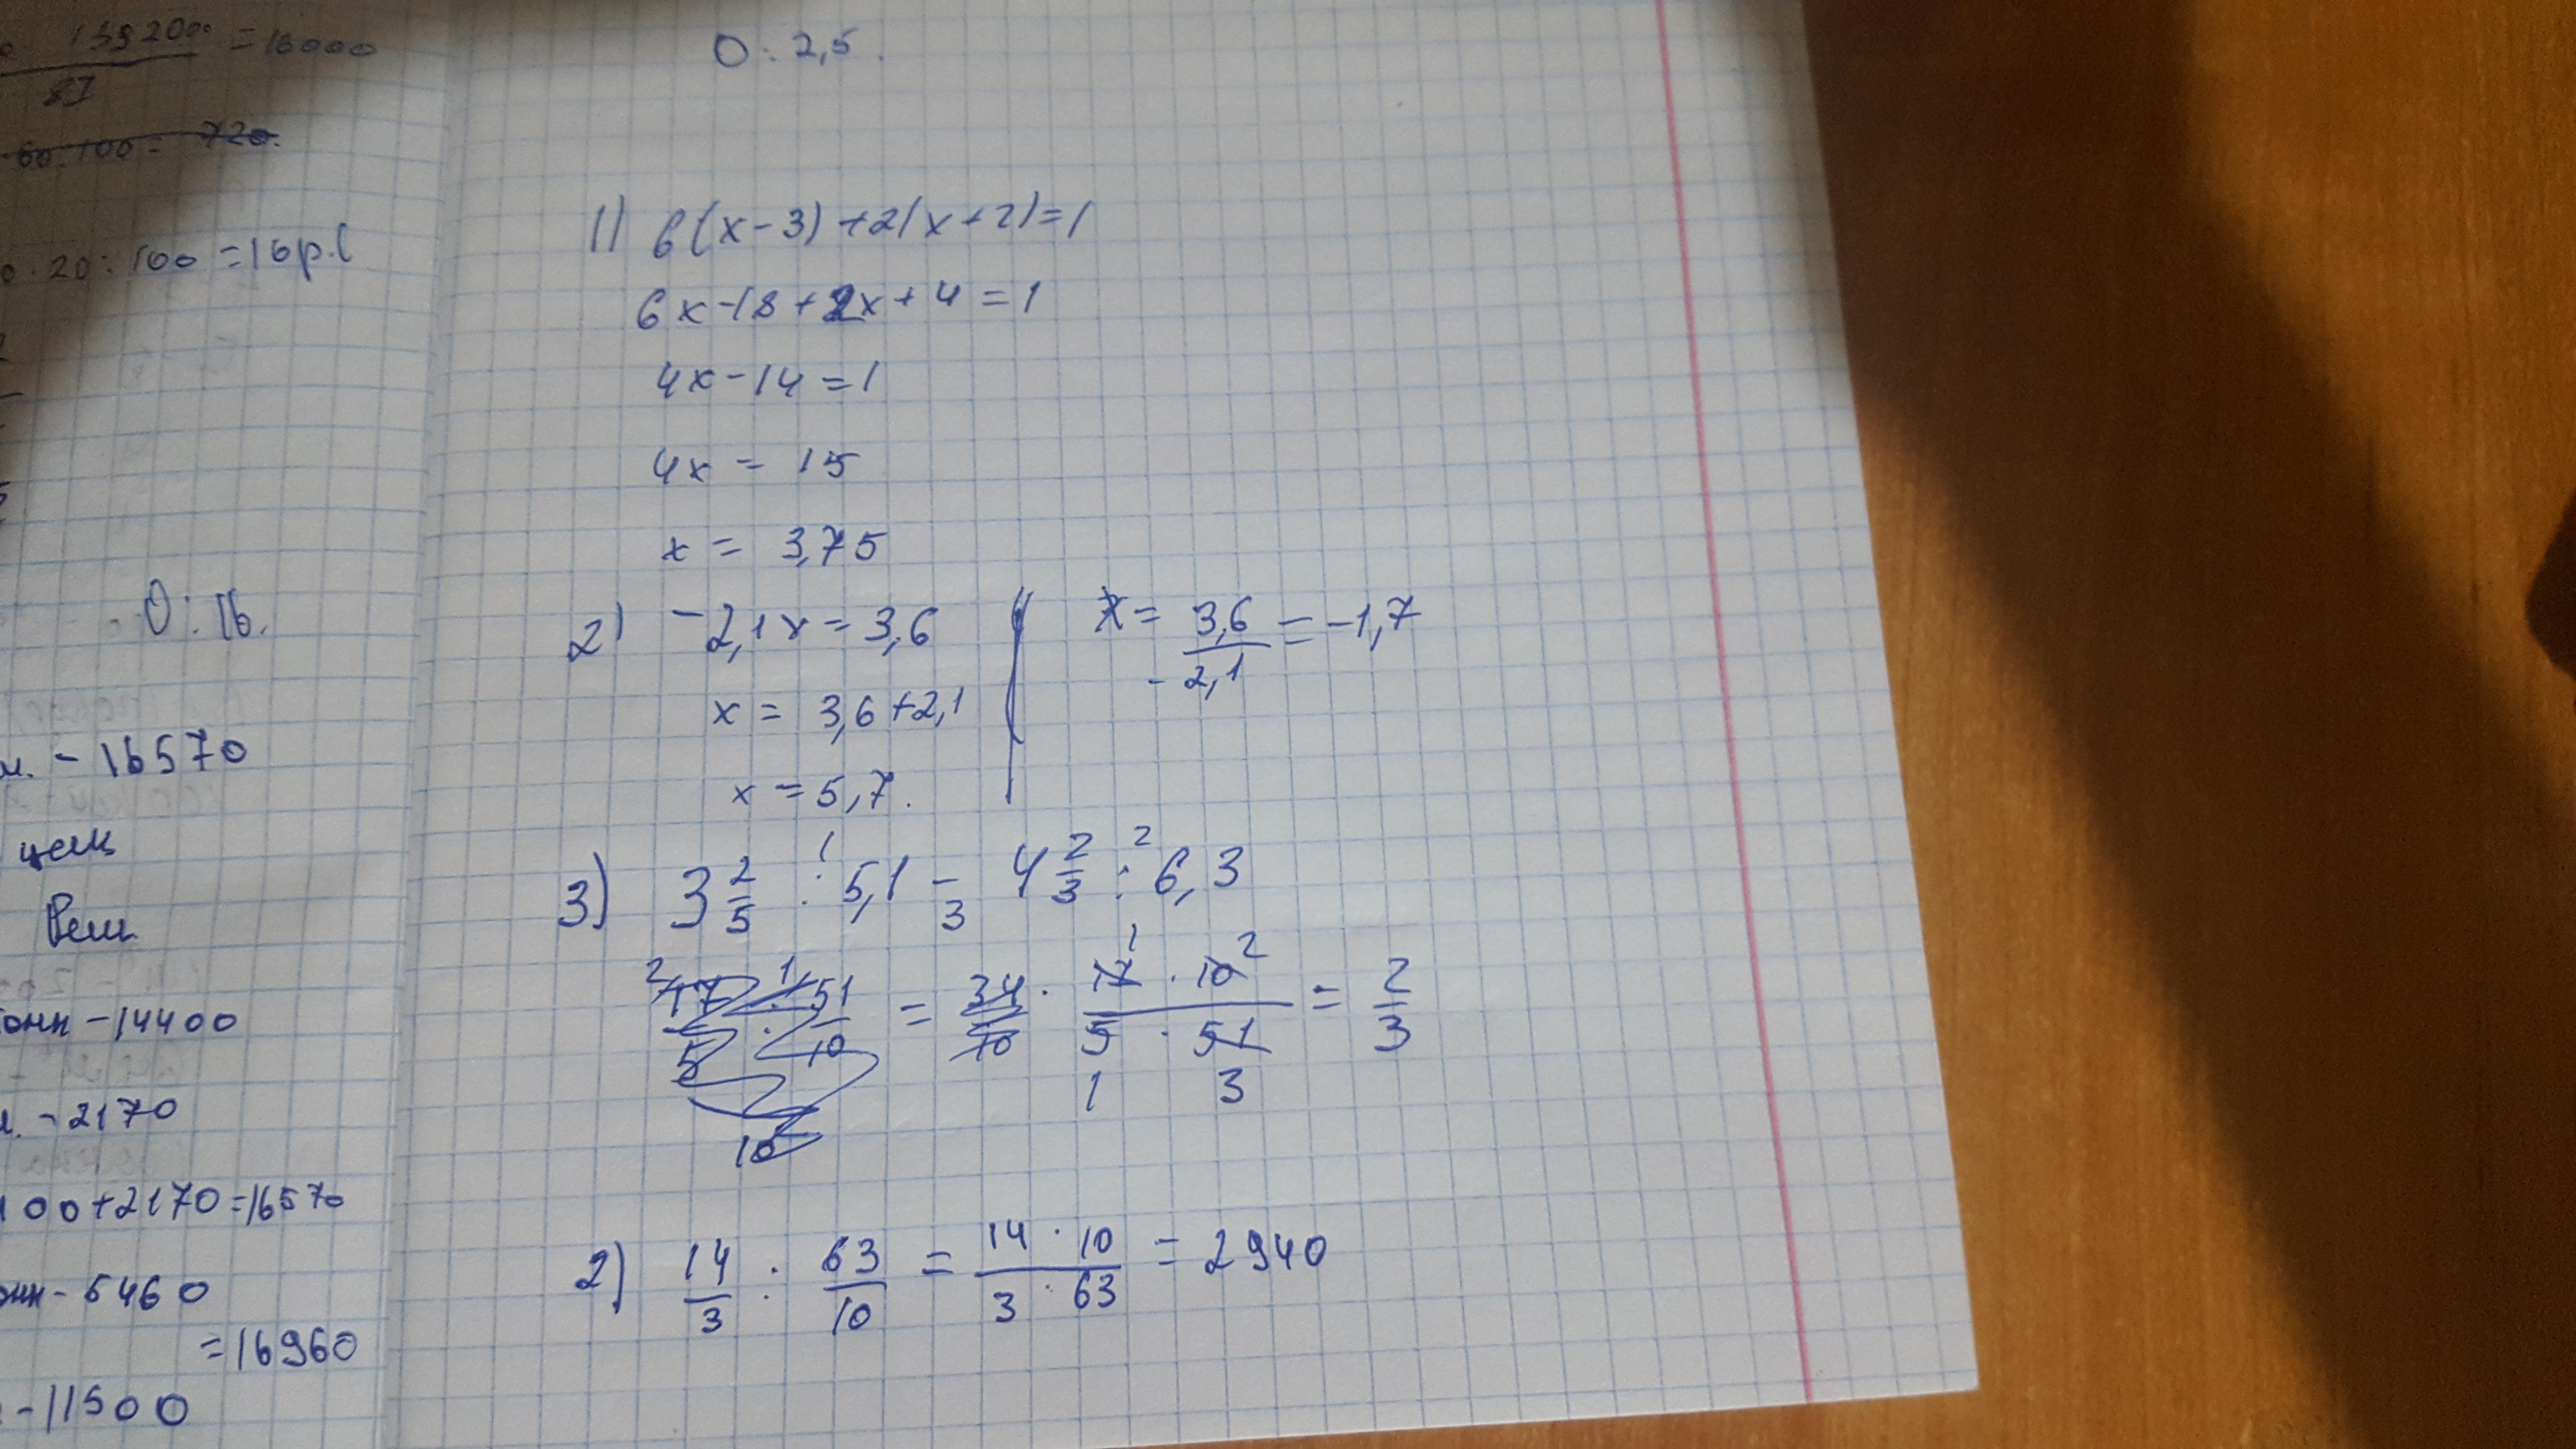 139200 = 16000
87
60 . 100 = 720.
0 . 20 : 100 = 16 р.(
О : 16.
- 16570
цени
Реш
онн - 14400
. - 2170
100 + 2170 = 16570
онн - 5460
= 16960
- 11500
О : 2,5.
1) 6(x-3)+2(x+2)=1
6x-18+2x+4=1
4x-14=1
4x = 15
x = 3,75
2) -2,1x = 3,6
x = 3,6+2,1
x = 5,7.
x = 3,6 / -2,1 = -1,7
3) 3 2/5 :¹ 5,1 -³ 4 2/3 :² 6,3
17/5 : 51/10 = 34/10 · 17 · 10 / 5 · 51 = 2/3
2) 14/3 : 63/10 = 14 · 10 / 3 · 63 = 2940